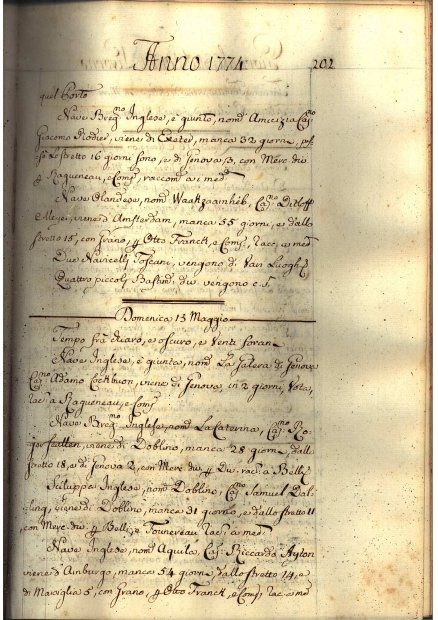 Anno 1774 202
quel Porto
Nave Breg.no Inglese, è giunto, nom.o Amicizia Cap.no
Giacomo Rodier, viene di Exeter, manca 32 giorni,
lo stretto 16 giorni sono, e di Genova 3, con Merc. div.
p Ragueneau, e Comp., raccom.a i med.
Nave Olandese, nom.o Waakzaamheid, Cap.no Ditloff
Meyer, viene d'Amsterdam, manca 55 giorni, e dallo
stretto 15, con Grano, p Otto Franck, e Comp., rac. a med.
Due Navicelli, Toscani, vengono di Vari Luoghi
Quattro piccoli Bastim. div. vengono c.s.
Domenica 13 Maggio
Tempo frà chiaro, e oscuro, e Venti
Nave Inglese, è giunta, nom.o La Galera di Genova
Cap.no Adamo Cockburn, viene di Genova, in 2 giorni, Vota,
rac. a Ragueneau, e Comp.
Nave Breg.no Inglese, nom.o La Caterina, Cap.no
viene di Doblino, manca 28 giorni, dallo
stretto 18, e di Genova 2, con Merc. div. p div. rac. a
Sciluppo Inglese, nom.o Doblino, Cap.no Samuel
viene di Doblino, manca 31 giorno, e dallo stretto 11
con Merc. div. p Belli, e Fonnereau rac. a med.
Nave Inglese, nom.o Aquila, Cap. Riccardo Ayton
viene d'Amburgo, manca 54 giorni dallo stretto 14, e
di Marsiglia 5, con Grano, p Otto Franck, e Comp. rac. a med.